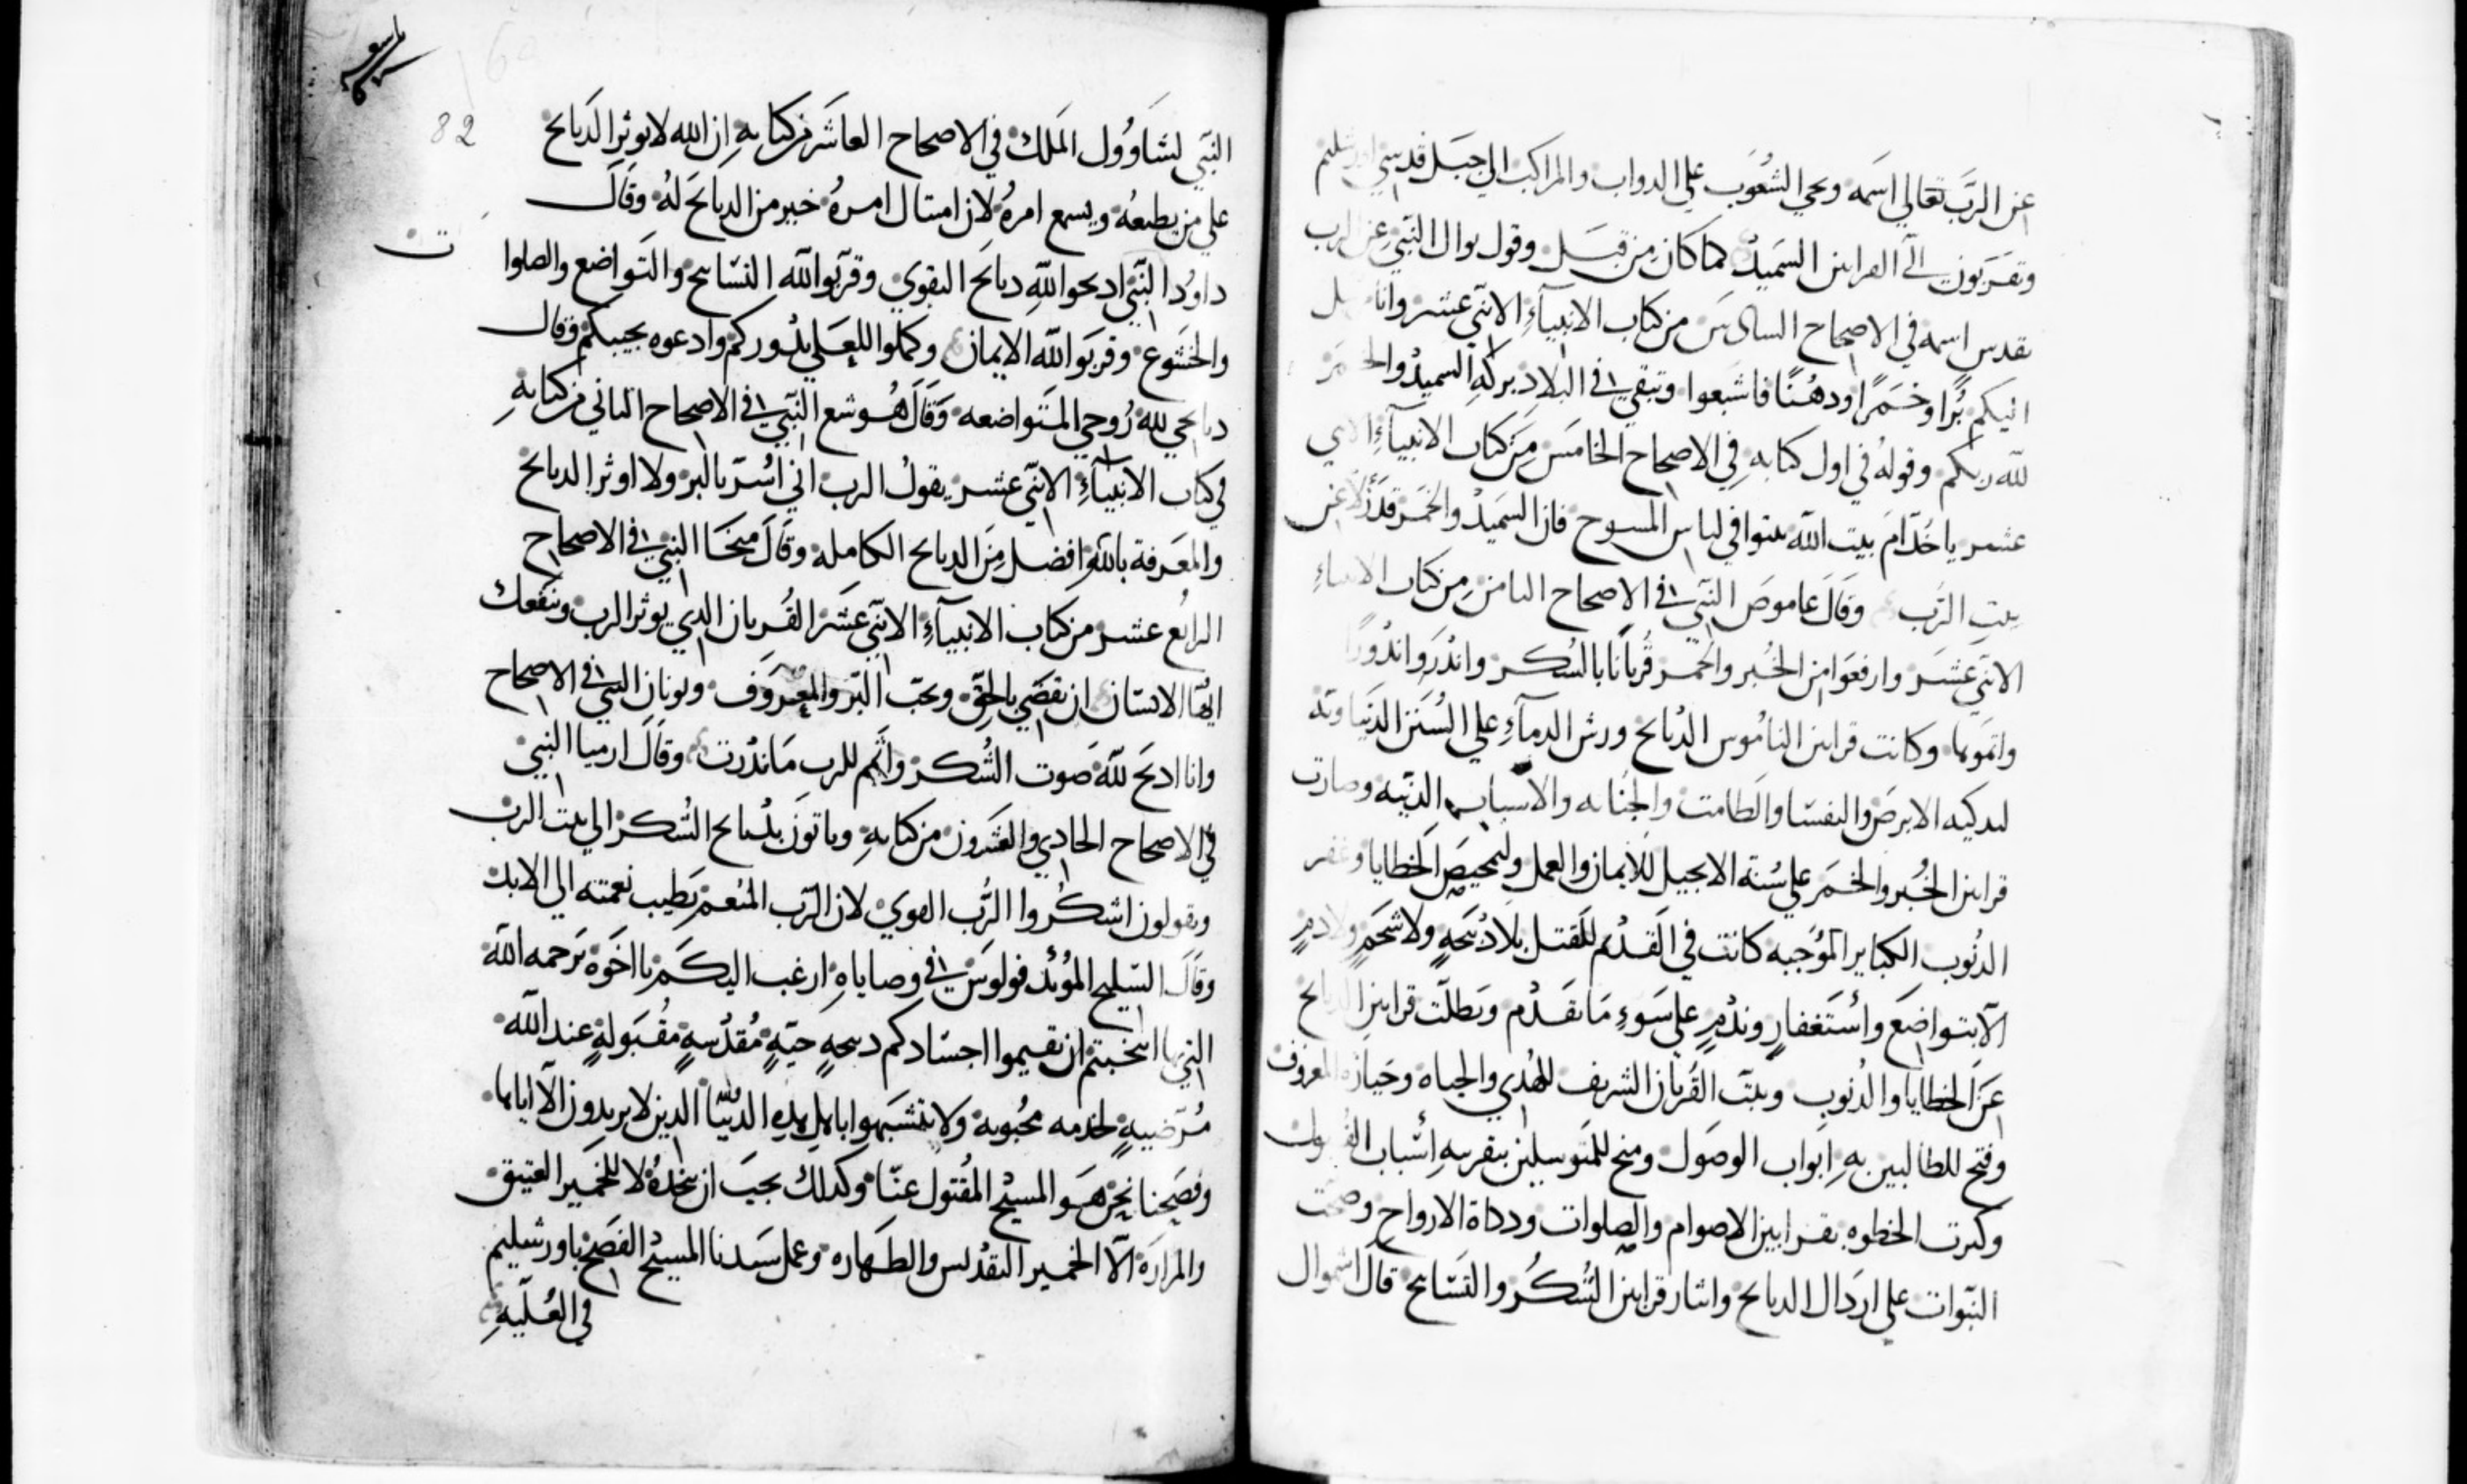 عن الرَّب تعالي اسمه ويجي الشعُوب علي الدواب والمراكب الي جبل قدسي اورشليم
وتقربون الّي القرابين السَميد كما كان من قبل وقول يوال النّبي عن الرب
تقدس اسمه في الاصحاح السادس من كتاب الانبيآءِ الاثني عشر وانا
اليكم بُرًّا وخمرًا ودهنًا فاشبعوا وتبقي في البلاد بركهِ السميد والخمر
لله ربكم وقوله في اول كتابه في الاصحاح الخامس من كتاب الانبيآءِ الاثني
عشر ياخُدّام بيت الله بيتوا في لباس المسوح فان السَميد والخمر قد زلا عن
بيت الرَّب وقال عاموص النّبي في الاصحاح الثامن من كتاب الانبياءِ
الاثني عشر وارفعوا من الخُبر والخمر قُربانًا بالشكر واندروا ندُورًا
واتموها وكانت قرابين النامُوس الدبايح ورش الدمآءِ علي السُنن الدنياويَه
لتدكيه الابرص والنفسا والطامت والجنابه والاسباب الدنيّه وصارت
قرابين الخُبر والخمر علي سُنة الانجيل للايمان والعمل ولتمحيص الخطايا وغفر
الدنُوب الكباير المُوجبه كانت في القدم للقتل بلا دبيحهٍ ولا شحمٍ ولا دمٍ
الّا بتواضع وأستغفارٍ وندمٍ علي سوءِ ما تقدم وبطلت قرابين الدبايح
عن الخطايا والدُنوب وبيت القُربان الشريف للهُدي والحياه وحيازه المعروف
وفتح للطالبين بهِ ابواب الوصول ومنح للمتوسلين بتقربهِ اسباب القبول
وكبرت الخطوه بقرابين الاصوام والصلوات ودكاة الارواح وصحت
النبّوات علي اردال الدبايح وايثار قرابين الشكر والتسابيح قال اشموال
82
النّبي لشاوُول الملك في الاصحاح العاشر من كتابهِ ان الله لا يوثر الدبايح
علي من يطيعُه ويسمع امرهُ لان امتثال امرهُ خير من الدبايح لهُ وقال
داوُد النّبي ادبحوا للّهِ دبايح التقوي وقربّوا للّه التسابيح والتواضع والصلوات
والخشوع وقربوا للّه الايمان وكملوا للعلي ندوركم وادعوه يجيبكم وقال
دبايحي للهِ رُوحي المتواضعه وقال هُوشع النّبي في الاصحاح الثاني من كتابهِ
في كتاب الانبيآءِ الاثني عشر يقولُ الرب اني اُسُرّ بالبر ولا اوثر الدبايح
والمعرفة بالله افضل من الدبايح الكامله وقال ميخا النبي في الاصحاح
الرابع عشر من كتاب الانبيآءِ الاثني عشر القُربان الدي يوثر الرب وينفعك
ايُّها الانسان ان تقضي بالحق وتحب البرّ والمعروف ويونان النبي في الاصحاح
وانا ادبح للّه صوت الشُكر واتمم للرب ما ندرت وقال ارميا النبي
في الاصحاح الحادي والعشرون من كتابهِ وياتون بدبايح الشكر الي بيت الرب
ويقولون اشكُروا الرَّب القوي لان الرّب المُنعم يَطيب نعمته الي الابد
وقال السّليح المُوئد فولوس في وصاياهِ ارغب اليكم يا اخوَة برحمه اللّه
التي بها انتخبتم ان تقيموا اجسادكم دبيحهٍ حيّهٍ مُقدّسهٍ مقُبولهٍ عند اللّه
مُرضيهٍ لخدمه محُبوبه ولا تتشبهوا باهل هدهِ الدُنيّا الدين لا يريدون الّا اياها
وفصحنا نحن هو المسيح المقُتول عنّا وكدلك يجب ان نتخدهُ لا للخمير العتيق
والمرارَه الّا الخمير التقديس والطهاره وعمل سيدنا المسيح الفصح باورشليم
في العُلّيهِ